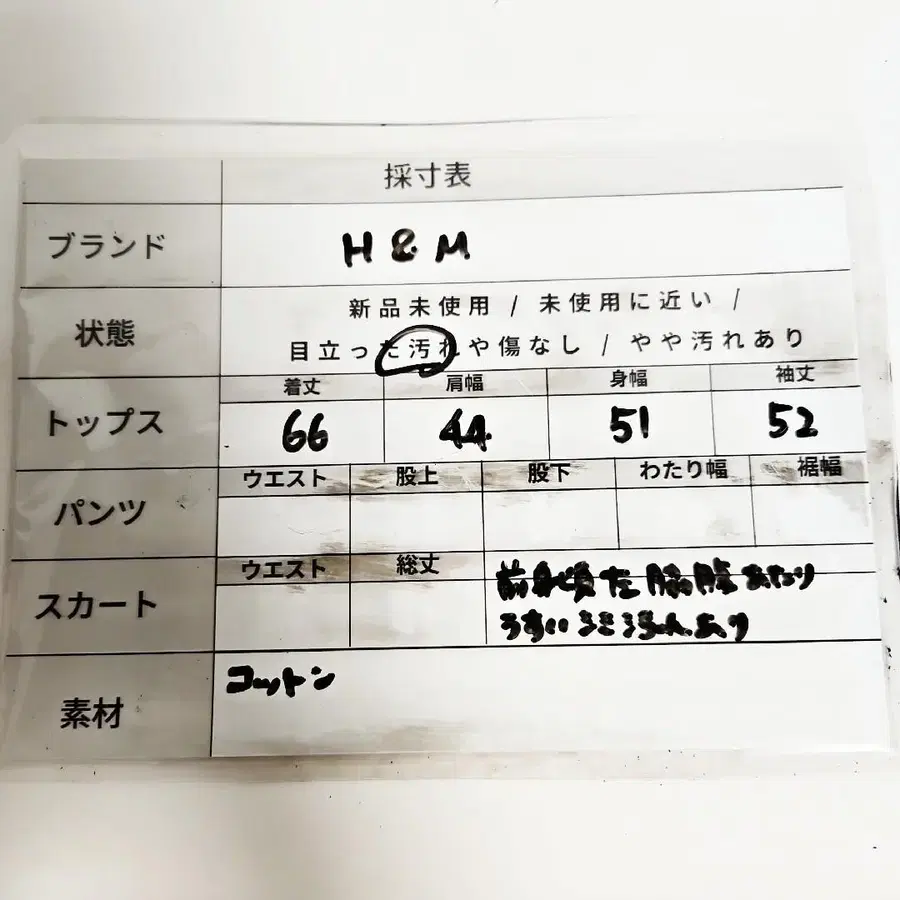 採寸表
ブランド
H&M
状態
新品未使用 / 未使用に近い /
目立った汚れや傷なし / やや汚れあり
トップス
着丈 肩幅 身幅 袖丈
66 44 51 52
パンツ
ウエスト 股上 股下 わたり幅 裾幅
スカート
ウエスト 総丈
前身頃左 あたり
うすいシミ あり
素材
コットン